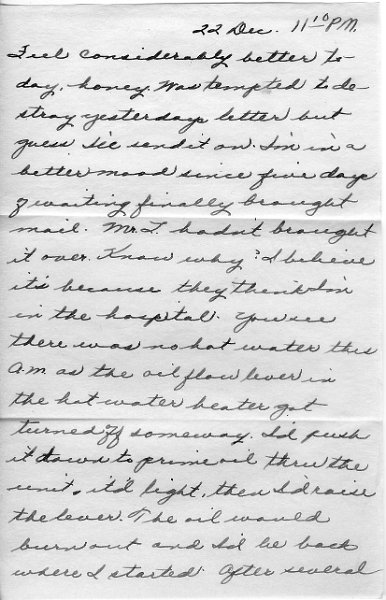 22 Dec. 11:10 P.M.
Feel considerably better to-
day, honey. Was tempted to de-
stroy yesterdays letter but
guess I'll send it on. I'm in a
better mood since five days
of waiting finally brought
mail. Mr. T. hadn't brought
it over. Know why? I believe
it's because they think I'm
in the hospital. You see
there was no hot water this
A.M. as the oil flow lever in
the hot water heater got
turned off someway. I'd push
it down to prime oil thru the
unit, it'd light, then I'd raise
the lever. The oil would
burn out and I'd be back
where I started. After several